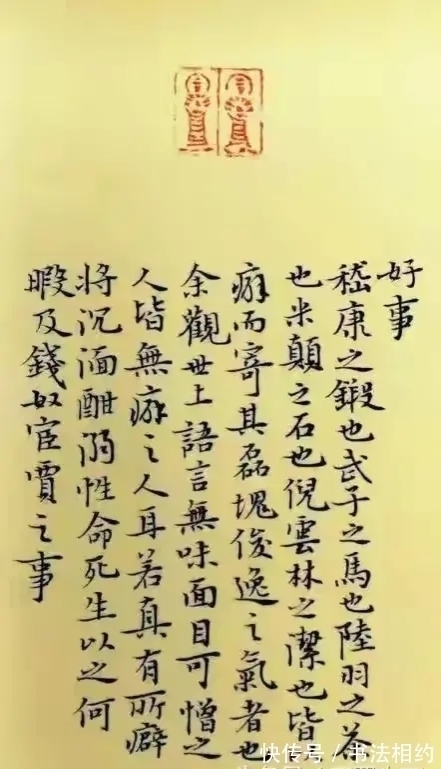 好事
嵇康之鍛也武子之馬也陸羽之茶
也米顛之石也倪雲林之潔也皆
癖而寄其磊塊俊逸之氣者也
余觀世上語言無味面目可憎之
人皆無癖之人耳若真有所癖
將沉湎酣溺性命死生以之何
暇及錢奴宦賈之事
快传号 / 书法相约